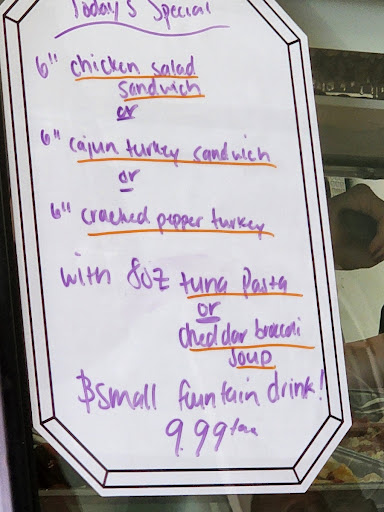 Today's Special
6" chicken salad
sandwich
or
6" cajun turkey sandwich
or
6" cracked pepper turkey
with 8oz tuna Pasta
or
cheddar broccoli
soup
& small fountain drink!
9.99 + tax